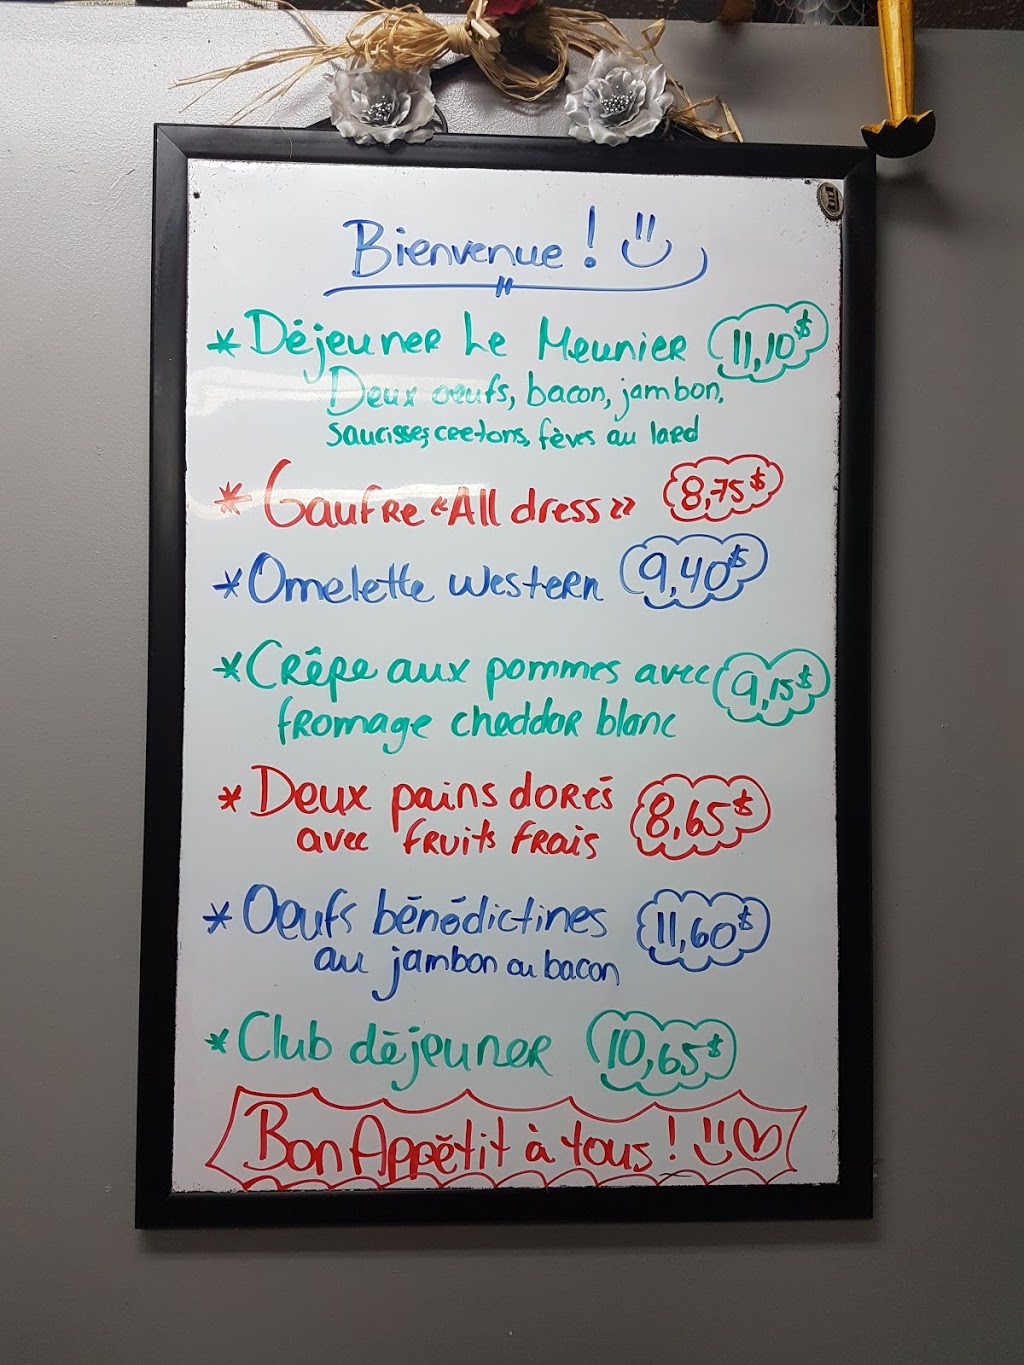 Bienvenue !
* Déjeuner Le Meunier 11,10$
Deux oeufs, bacon, jambon,
saucisses, cretons, fèves au lard
* Gaufre «All dress» 8,75$
* Omelette western 9,40$
* Crêpe aux pommes avec 9,15$
fromage cheddar blanc
* Deux pains dorés 8,65$
avec fruits frais
* Oeufs bénédictines 11,60$
au jambon ou bacon
* Club déjeuner 10,65$
Bon Appétit à tous !